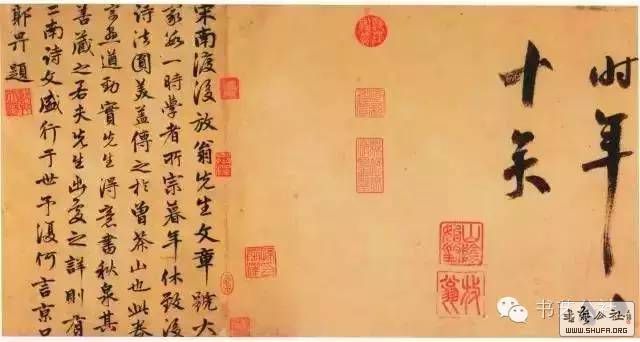 时年八
十矣
放翁
宋南渡後放翁先生文章號大
家數一時學者所宗暮年休致後
詩法圓美蓋傳之於曾茶山也此卷
字畫遒勁實先生得意書秋泉其
善藏之若夫先生出處之詳則有
二南詩文盛行于世予復何言京口
郭畀題
WWW.SHUFA.ORG